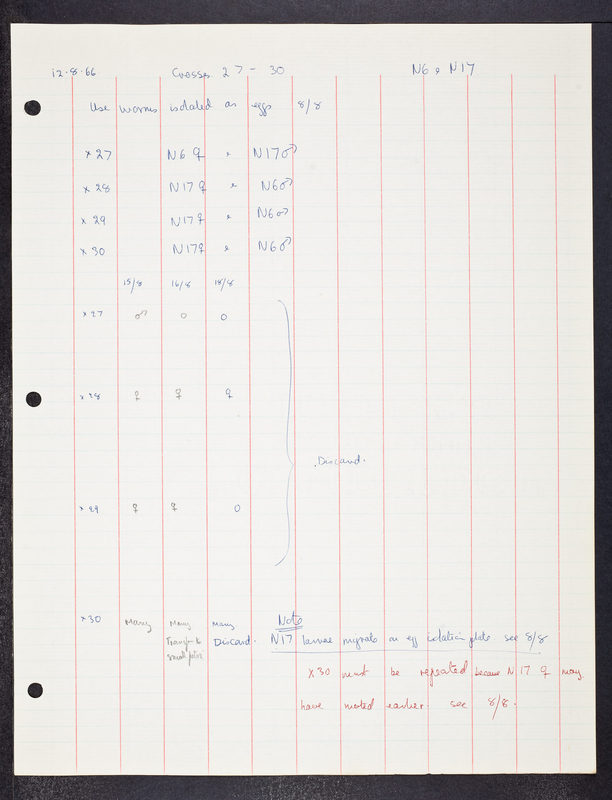 12·8·66 Crosses 27 - 30 N6 & N17
Use worms isolated as eggs 8/8
x 27 N6 ♀ x N17♂
x 28 N17 ♀ x N6♂
x 29 N17 ♀ x N6♂
x 30 N17♀ x N6♂
15/8 16/8 18/8
x 27 ♂ 0 0
x 28 ♀ ♀ ♀
Discard.
x 29 ♀ ♀ 0
x30 Many Many Many Note
Transfer to Discard. N17 larvae migrate on egg isolation plate see 8/8
small petri
x30 must be repeated because N17 ♀ may
have mated earlier see 8/8.